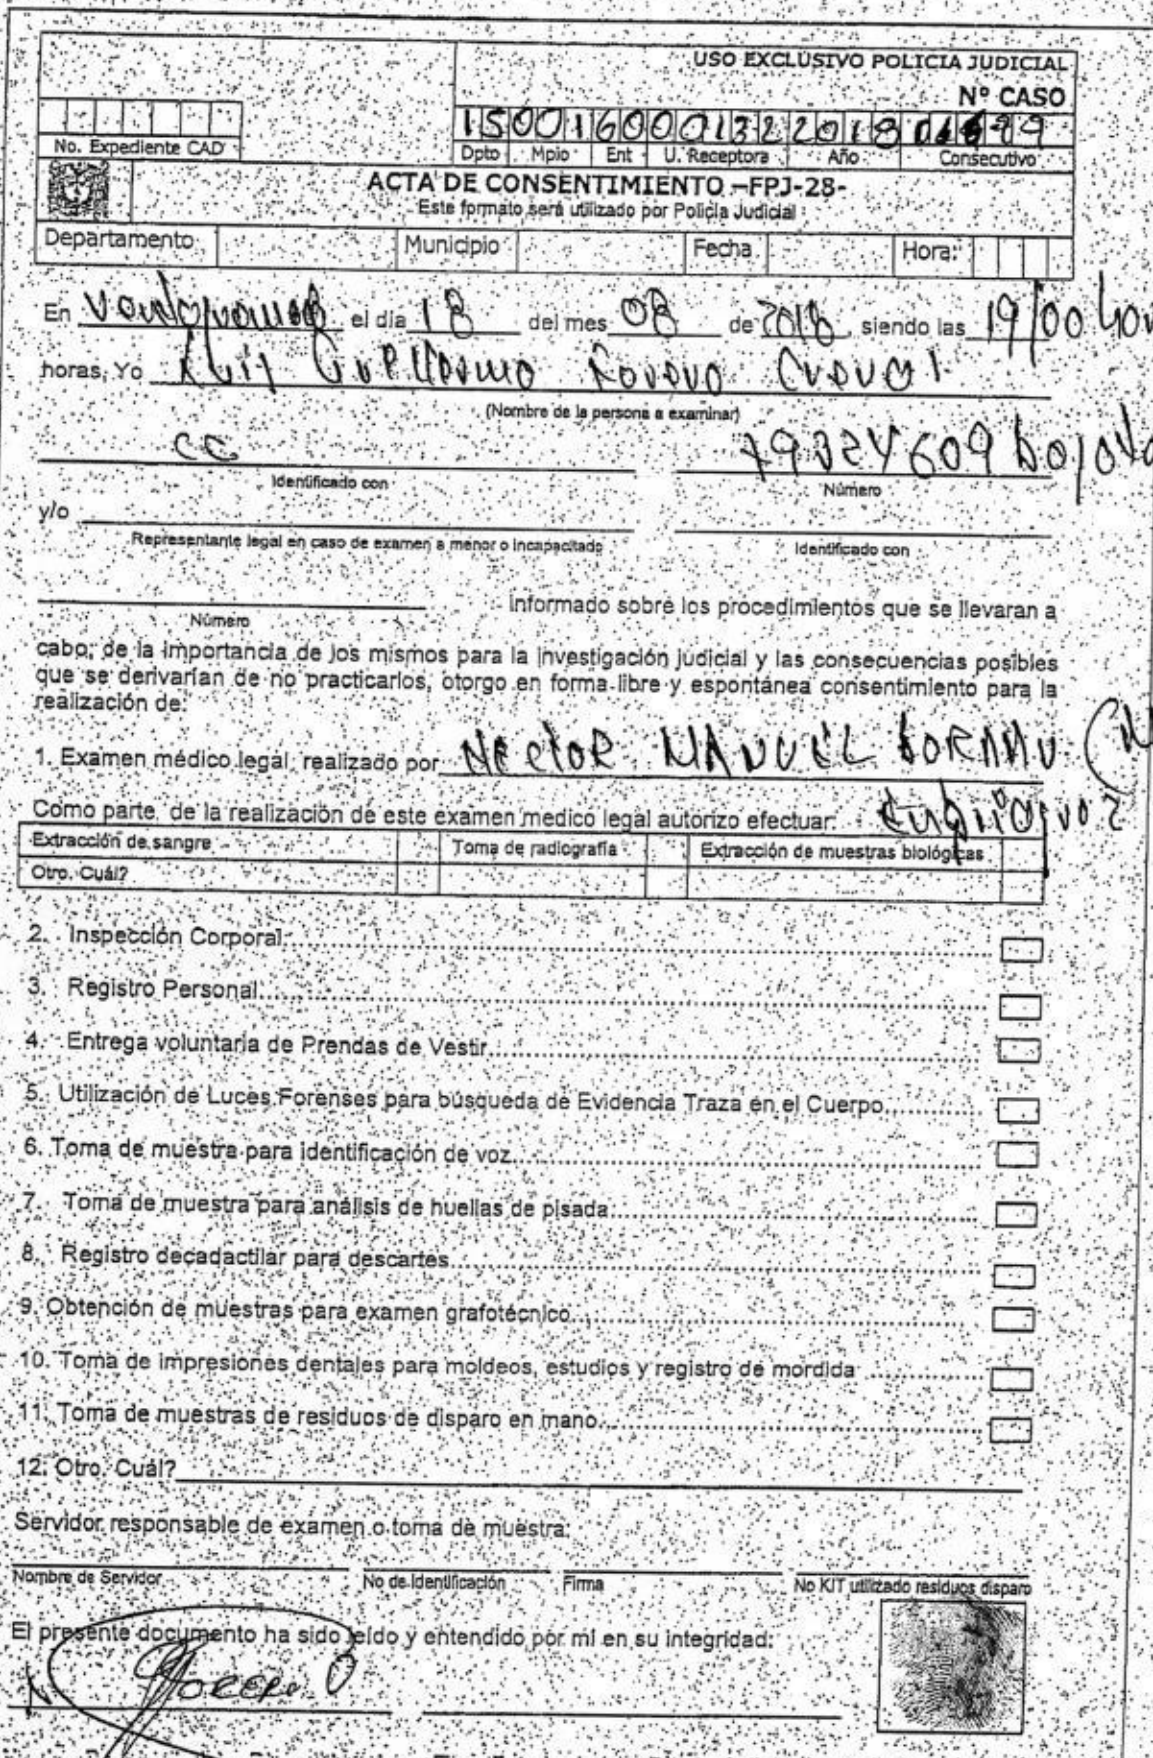 USO EXCLUSIVO POLICIA JUDICIAL
Nº CASO
No. Expediente CAD
150016000132 2018
Dpto Mpio Ent U. Receptora Año Consecutivo
ACTA DE CONSENTIMIENTO –FPJ-28-
Este formato será utilizado por Policía Judicial
Departamento Municipio Fecha Hora:
En el día 18 del mes 08 de 2018 siendo las 19/00
horas, Yo
(Nombre de la persona a examinar)
CC 79324609
Identificado con Número
y/o
Representante legal en caso de examen a menor o incapacitado Identificado con
Número informado sobre los procedimientos que se llevaran a
cabo, de la importancia de los mismos para la investigación judicial y las consecuencias posibles
que se derivarían de no practicarlos, otorgo en forma libre y espontánea consentimiento para la
realización de:
1. Examen médico legal, realizado por Hector MANUEL
Como parte de la realización de este examen medico legal autorizo efectuar:
Extracción de sangre Toma de radiografía Extracción de muestras biológicas
Otro. Cuál?
2. Inspección Corporal
3. Registro Personal
4. Entrega voluntaria de Prendas de Vestir
5. Utilización de Luces Forenses para búsqueda de Evidencia Traza en el Cuerpo
6. Toma de muestra para identificación de voz
7. Toma de muestra para análisis de huellas de pisada
8. Registro decadactilar para descartes
9. Obtención de muestras para examen grafotécnico
10. Toma de impresiones dentales para moldeos, estudios y registro de mordida
11. Toma de muestras de residuos de disparo en mano
12. Otro. Cuál?
Servidor responsable de examen o toma de muestra:
Nombre de Servidor No de Identificación Firma No KIT utilizado residuos disparo
El presente documento ha sido leído y entendido por mi en su integridad: